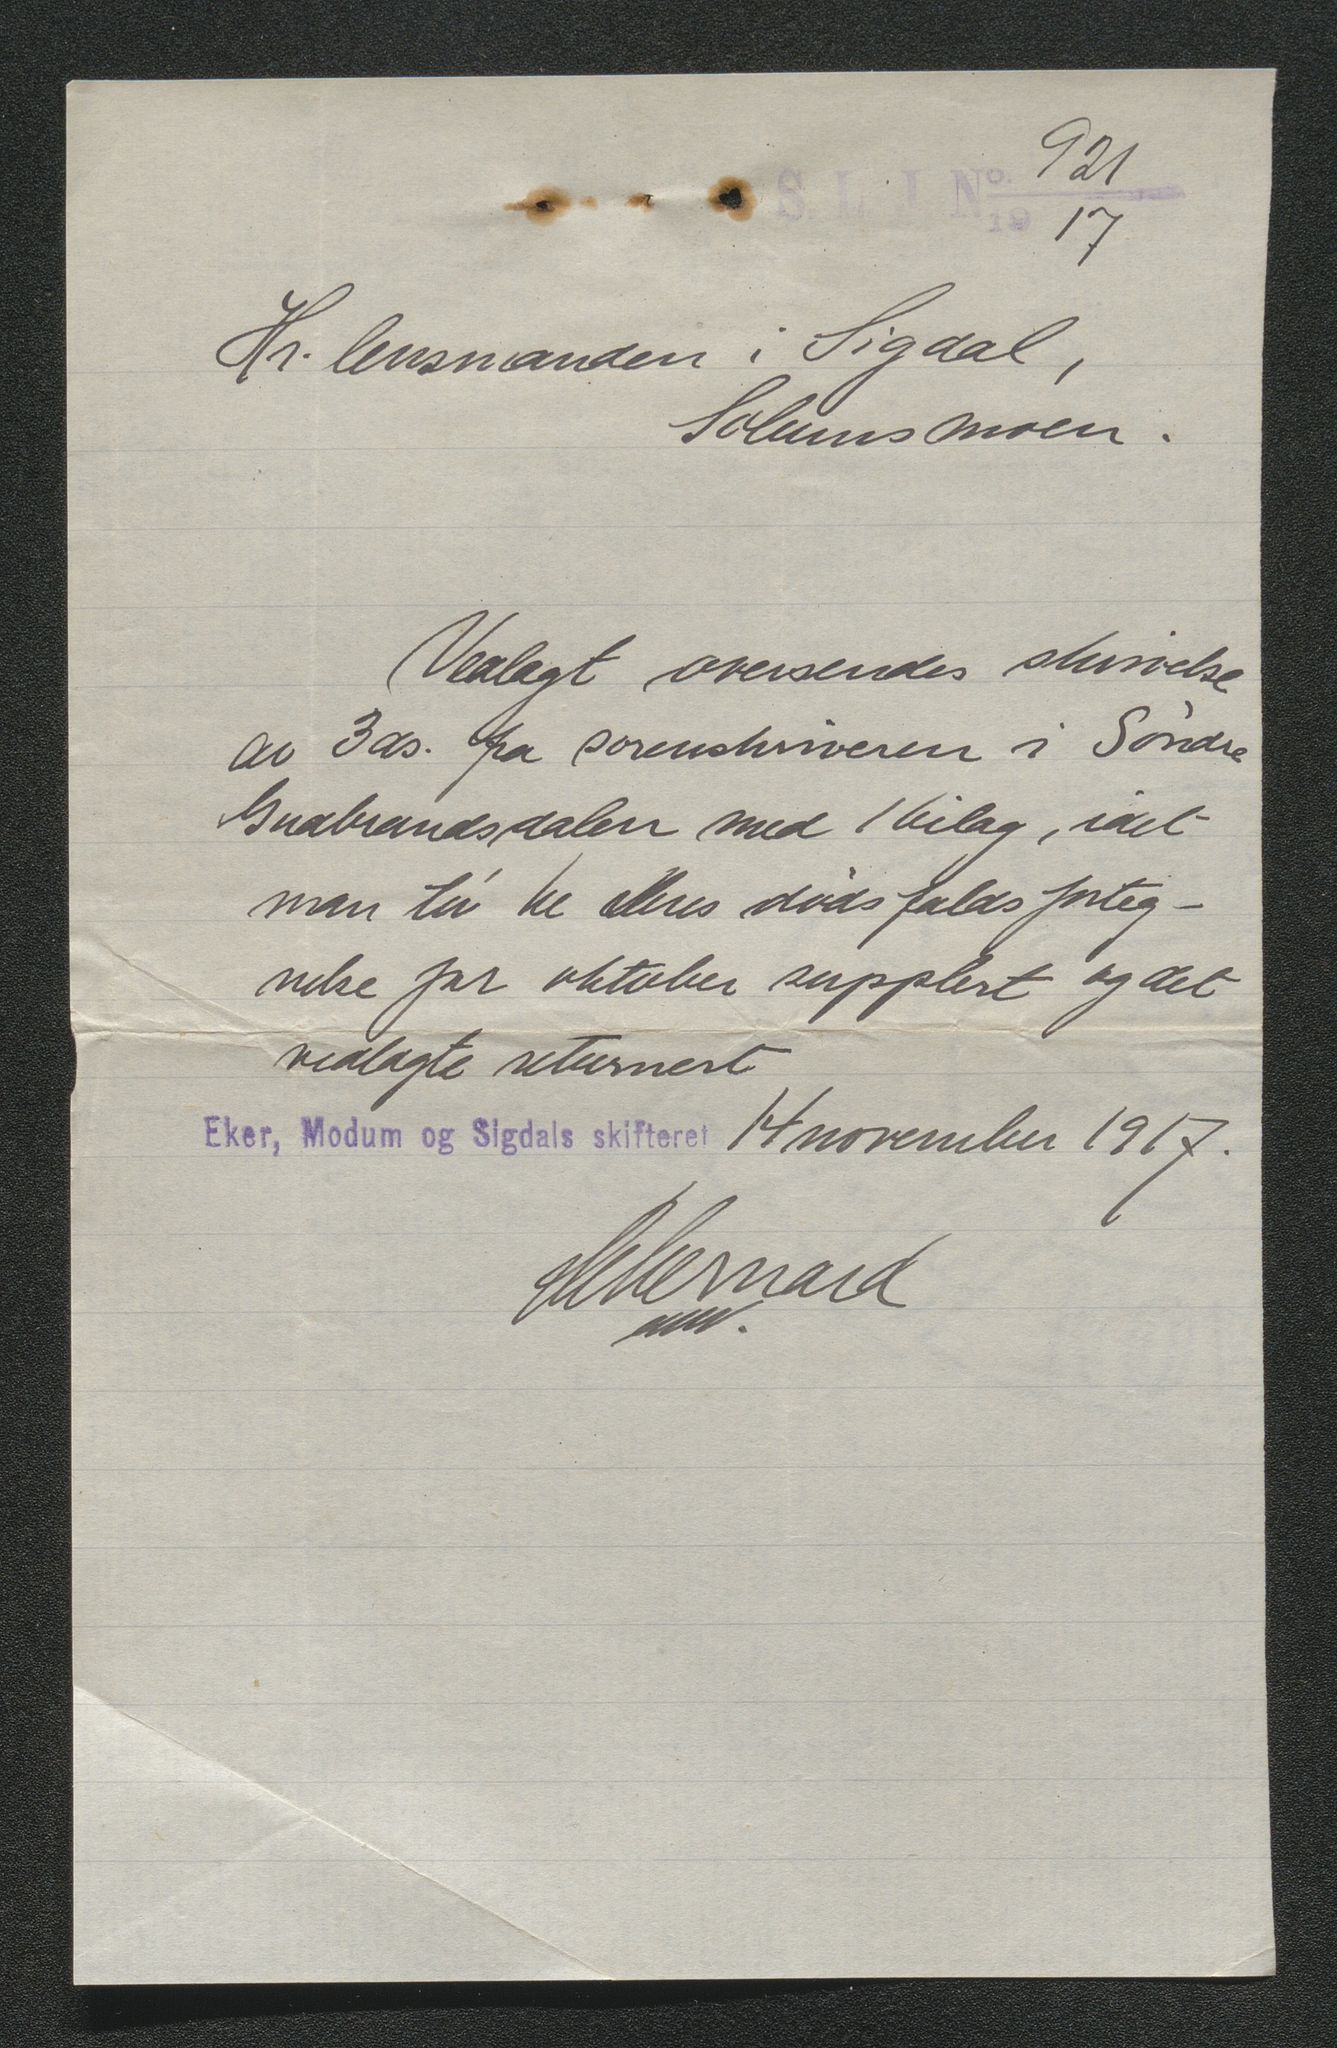 921
S. L. J. No.
19 17
Hr. lensmanden i Sigdal,
Solumsmoen.
Vedlagt oversendes skrivelse
av 3 ds. fra sorenskriveren i Söndre
Gudbrandsdalen med 1 bilag, idet
man tör be Deres dödsfaldsforteg-
nelse for oktober supplert og det
vedlagte returnert
Eker, Modum og Sigdals skifteret 14 november 1917.